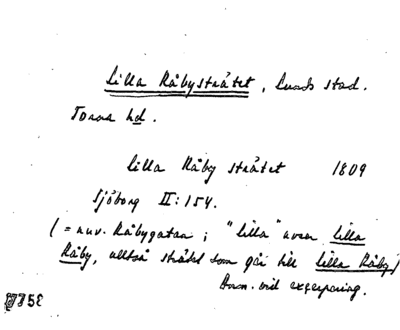 Lilla Råbystråtet, Lunds stad.
Torna hd.
Lilla Råby stråtet 1809
Sjöborg II:154.
(= nuv. Råbygatan; "lilla" avser Lilla
Råby, alltså stråtet som går till Lilla Råby)
Anm. vid excerpering.